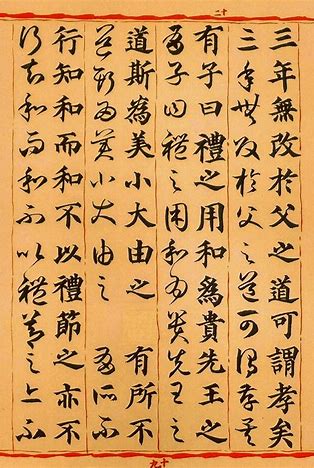 十二
三年無改於父之道可謂孝矣
三年無改於父之道可謂孝矣
有子曰禮之用和為貴先王之
有子曰禮之用和為貴先王之
道斯為美小大由之 有所不
道斯為美小大由之 有所不
行知和而和不以禮節之亦不
行知和而和不以禮節之亦不
十九